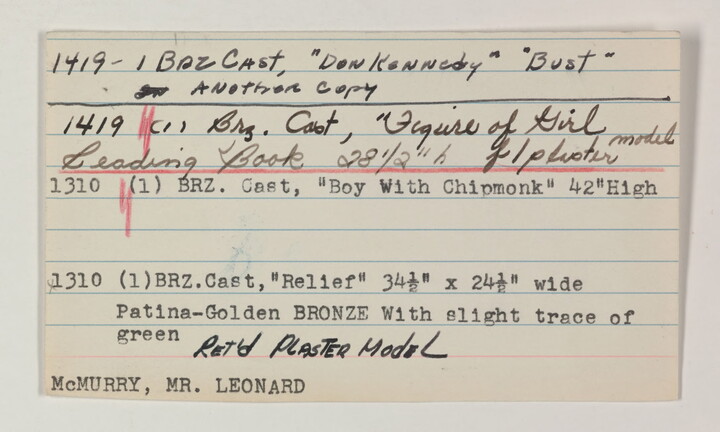 1419 - 1 BRZ CAST, "Don Kennedy" "Bust"
Another Copy
1419 (1) Brz. Cast, "Figure of Girl
Leading Book 28 1/2" h f/plaster model
1310 (1) BRZ. Cast, "Boy With Chipmonk" 42"High
1310 (1)BRZ.Cast,"Relief" 34½" x 24½" wide
Patina-Golden BRONZE With slight trace of
green Ret'd Plaster Model
McMURRY, MR. LEONARD